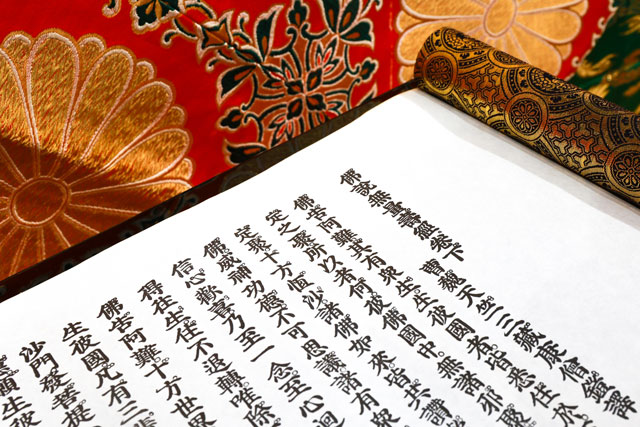 佛說無量壽經卷下 曹魏天竺三藏康僧鎧譯
佛告阿難其有衆生生彼國者皆悉住於
定之聚所以者何彼佛國中無諸邪聚
定聚十方恆沙諸佛如來皆共讃
佛威神功德不可思議諸有衆
信心歡喜乃至一念至心迴
得往生住不退轉唯除
佛告阿難十方世
生彼國凡有三
沙門發菩提
願生彼